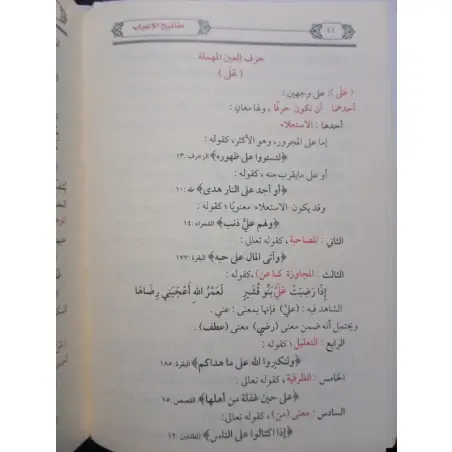 مفاتيح الإعراب
٤٤
حرف العين المهملة
( عَلَى )
( عَلَى ): على وجهين :
أحدهما أن تكون حرفًا ، ولها معانٍ :
أحدها : الاستعلاء
إما على المجرور، وهو الأكثر، كقوله :
﴿لتستووا على ظهوره﴾ الزخرف: ١٣
أو على ما يقرب منه ، كقوله :
﴿أو أجد على النار هدى﴾ طه : ١٠
وقد يكون الاستعلاء معنويًا ؛ كقوله :
﴿ولهم عليَّ ذنب﴾ الشعراء: ١٤
الثاني : المصاحبة، كقوله تعالى :
﴿وآتى المال على حبه﴾ البقرة: ١٧٧
الثالث : المجاوزة كـ(عن) ،كقوله :
إِذَا رَضِيَتْ عَلَيَّ بَنُو قُشَيْرٍ لَعَمْرُ اللهِ أَعْجَبَنِي رِضَاهَا
الشاهد فيه : (عليَّ) فإنها بمعنى : عني .
ويحتمل أنه ضمن معنى (رضي) معنى (عطف) .
الرابع : التعليل ؛ كقوله :
﴿ولتكبروا الله على ما هداكم﴾ البقرة: ١٨٥
الخامس : الظرفية ، كقوله تعالى :
﴿على حين غفلة من أهلها﴾ القصص: ١٥
السادس : معنى (من) ، كقوله تعالى:
﴿إذا اكتالوا على الناس﴾ المطففين: ٢